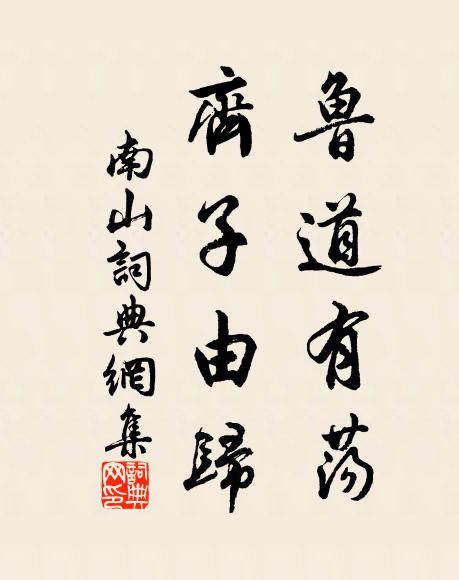 魯道有蕩
齊子由歸
南山詞典網集
詞典网印